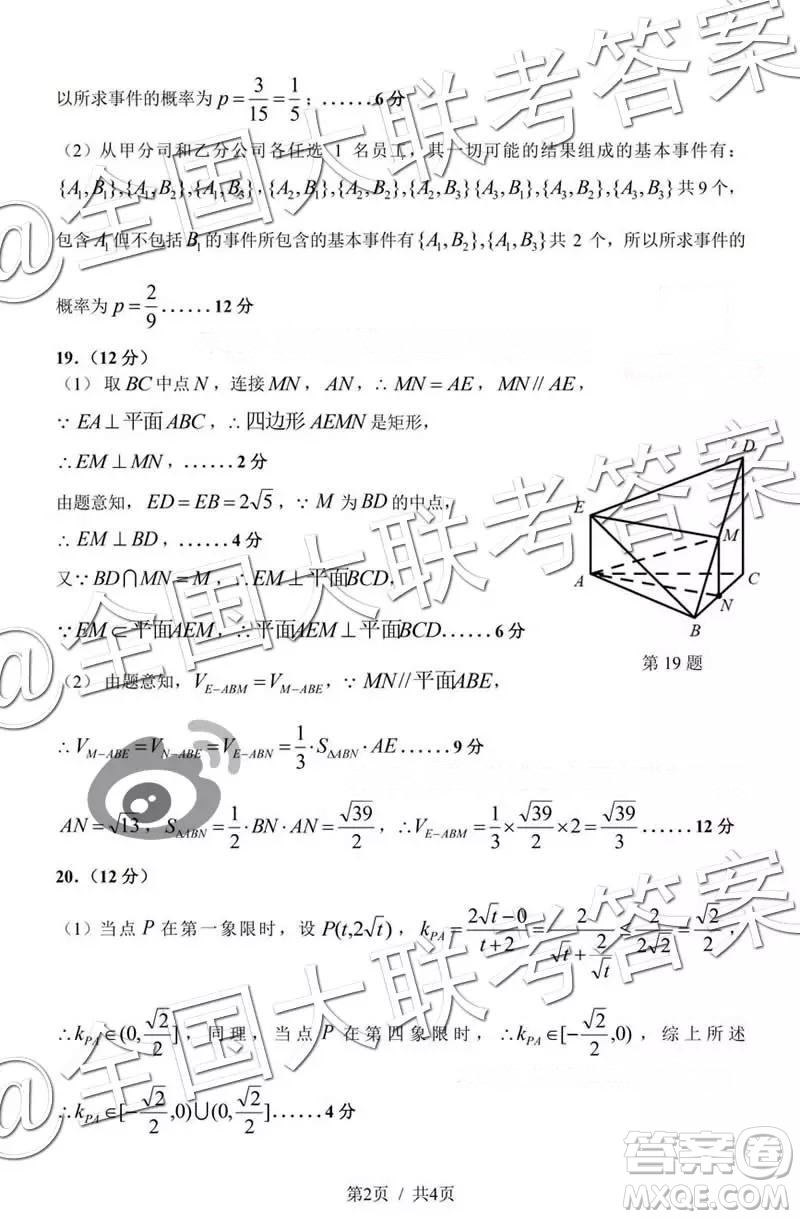 以所求事件的概率为 p = 3/15 = 1/5 ；......6 分
（2）从甲分司和乙分公司各任选 1 名员工，其一切可能的结果组成的基本事件有：
{A₁,B₁},{A₁,B₂},{A₁,B₃},{A₂,B₁},{A₂,B₂},{A₂,B₃}{A₃,B₁},{A₃,B₂},{A₃,B₃}共 9 个，
包含 A₁但不包括 B₁的事件所包含的基本事件有{A₁,B₂},{A₁,B₃}共 2 个，所以所求事件的
概率为 p = 2/9 ......12 分
19.（12 分）
（1） 取 BC 中点 N ，连接 MN ，AN，∴ MN = AE，MN // AE ，
∵ EA⊥平面 ABC，∴ 四边形 AEMN 是矩形，
∴EM⊥MN，......2 分
由题意知，ED = EB = 2√5，∵ M 为 BD 的中点，
∴ EM⊥BD，......4 分
又∵BD∩MN = M，∴EM⊥平面BCD，
∵EM⊂平面AEM，∴平面AEM⊥平面BCD......6 分
E
D
M
A
C
N
B
第 19 题
（2） 由题意知，V_{E-ABM} = V_{M-ABE}，∵ MN // 平面ABE，
∴V_{M-ABE} = V_{N-ABE} = V_{E-ABN} = 1/3 · S_{ΔABN} · AE ......9 分
AN = √13，S_{ΔABN} = 1/2 · BN · AN = √39/2，∴V_{E-ABM} = 1/3 × √39/2 × 2 = √39/3 ......12 分
20.（12 分）
（1）当点 P 在第一象限时，设 P(t,2√t)，k_{PA} = (2√t−0)/(t+2) = 2/(√t + 2/√t) ≤ 2/(2√2) = √2/2，
∴k_{PA}∈(0,√2/2]，同理，当点 P 在第四象限时，∴k_{PA}∈[−√2/2,0)，综上所述
∴k_{PA}∈[−√2/2,0)∪(0,√2/2]......4 分
第2页 / 共4页
@全国大联考答案
@全国大联考答案
@全国大联考答案
答案卷
MXQE.COM